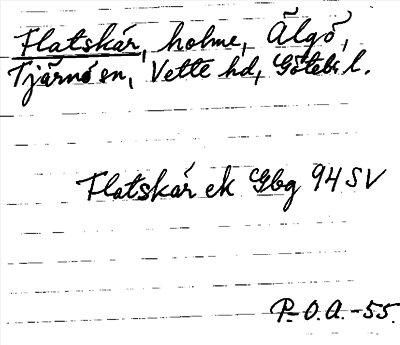 Flatskär, holme, Älgö,
Tjärnö sn, Vette hd, Götebs l.
Flatskär ek Gbg 94 SV
P.O.A. -55.